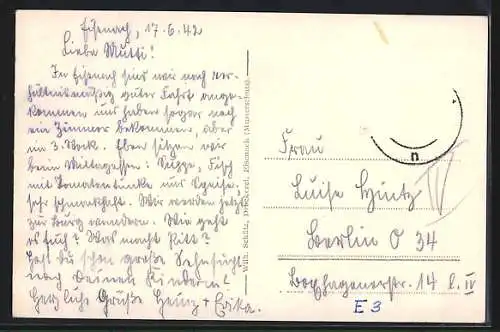 Eisenach, 17.6.42
Liebe Mutti!
In Eisenach sind wir nach ver-
hältnismäßig guter Fahrt ange-
kommen und haben sogar noch
ein Zimmer bekommen, aber
im 3. Stock. Eben sitzen wir
beim Mittagessen: Suppe, Fisch
mit Tomatentunke und Speise,
sehr schmackhaft. Wir werden jetzt
zur Burg wandern. Wie geht
es Euch? Was macht
Hast Du schon große Sehnsucht
nach Deinen Kindern?
Herzliche Grüße Heinz + Erika.
Wilh. Schütz, Druckerei, Eisenach
Frau
Luise
Berlin O 34
Boxhagenerstr. 14 IV
E 3